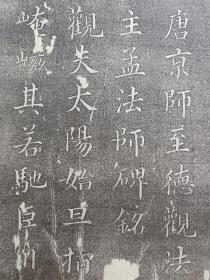 唐京師至德觀法
主孟法師碑銘
觀夫太陽始旦指
崦嵫其若馳巨川